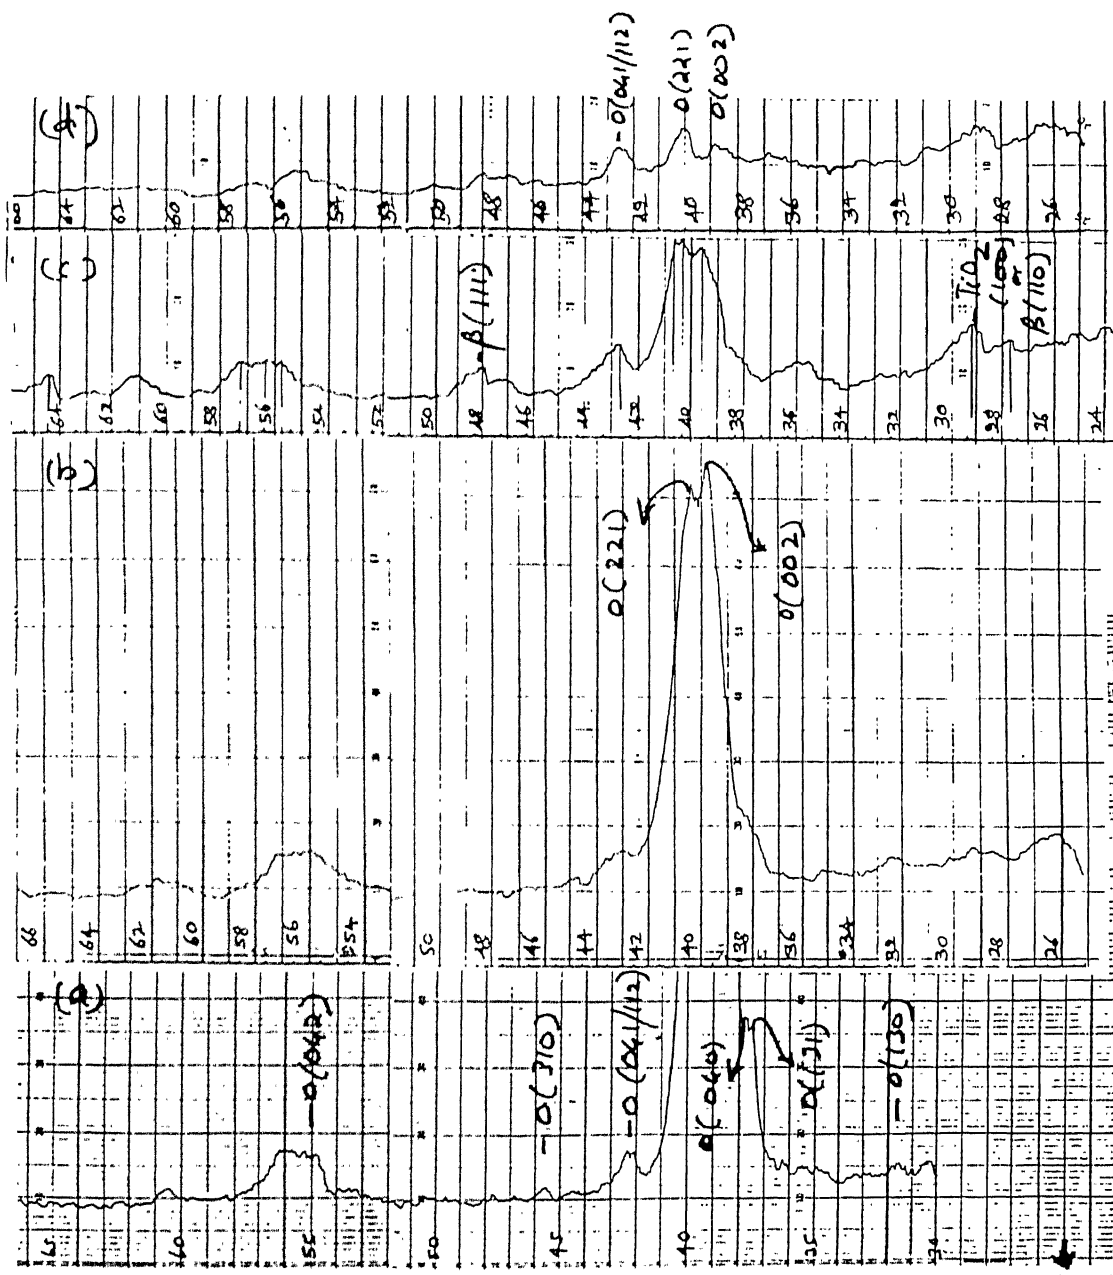 (d)
-O(041/112)
O(221)
O(002)
64
62
60
58
56
54
52
50
48
46
44
42
40
38
36
34
32
30
28
26
(c)
-β(111)
TiO2
(100)
or
β(110)
64
62
60
58
56
54
52
50
48
46
44
42
40
38
36
34
32
30
28
26
24
(b)
O(221)
O(002)
66
64
62
60
58
56
54
50
48
46
44
42
40
38
36
34
32
30
28
26
(a)
-O(042)
-O(310)
-O(041/112)
O(040)
O(131)
-O(130)
65
60
55
50
45
40
35
30